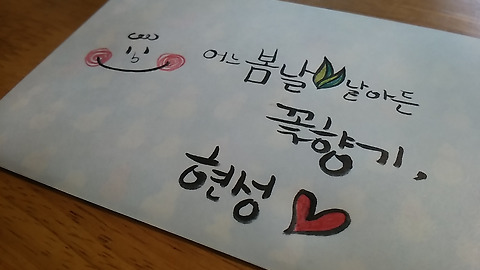 어느 봄날 날아든
꽃향기,
현성